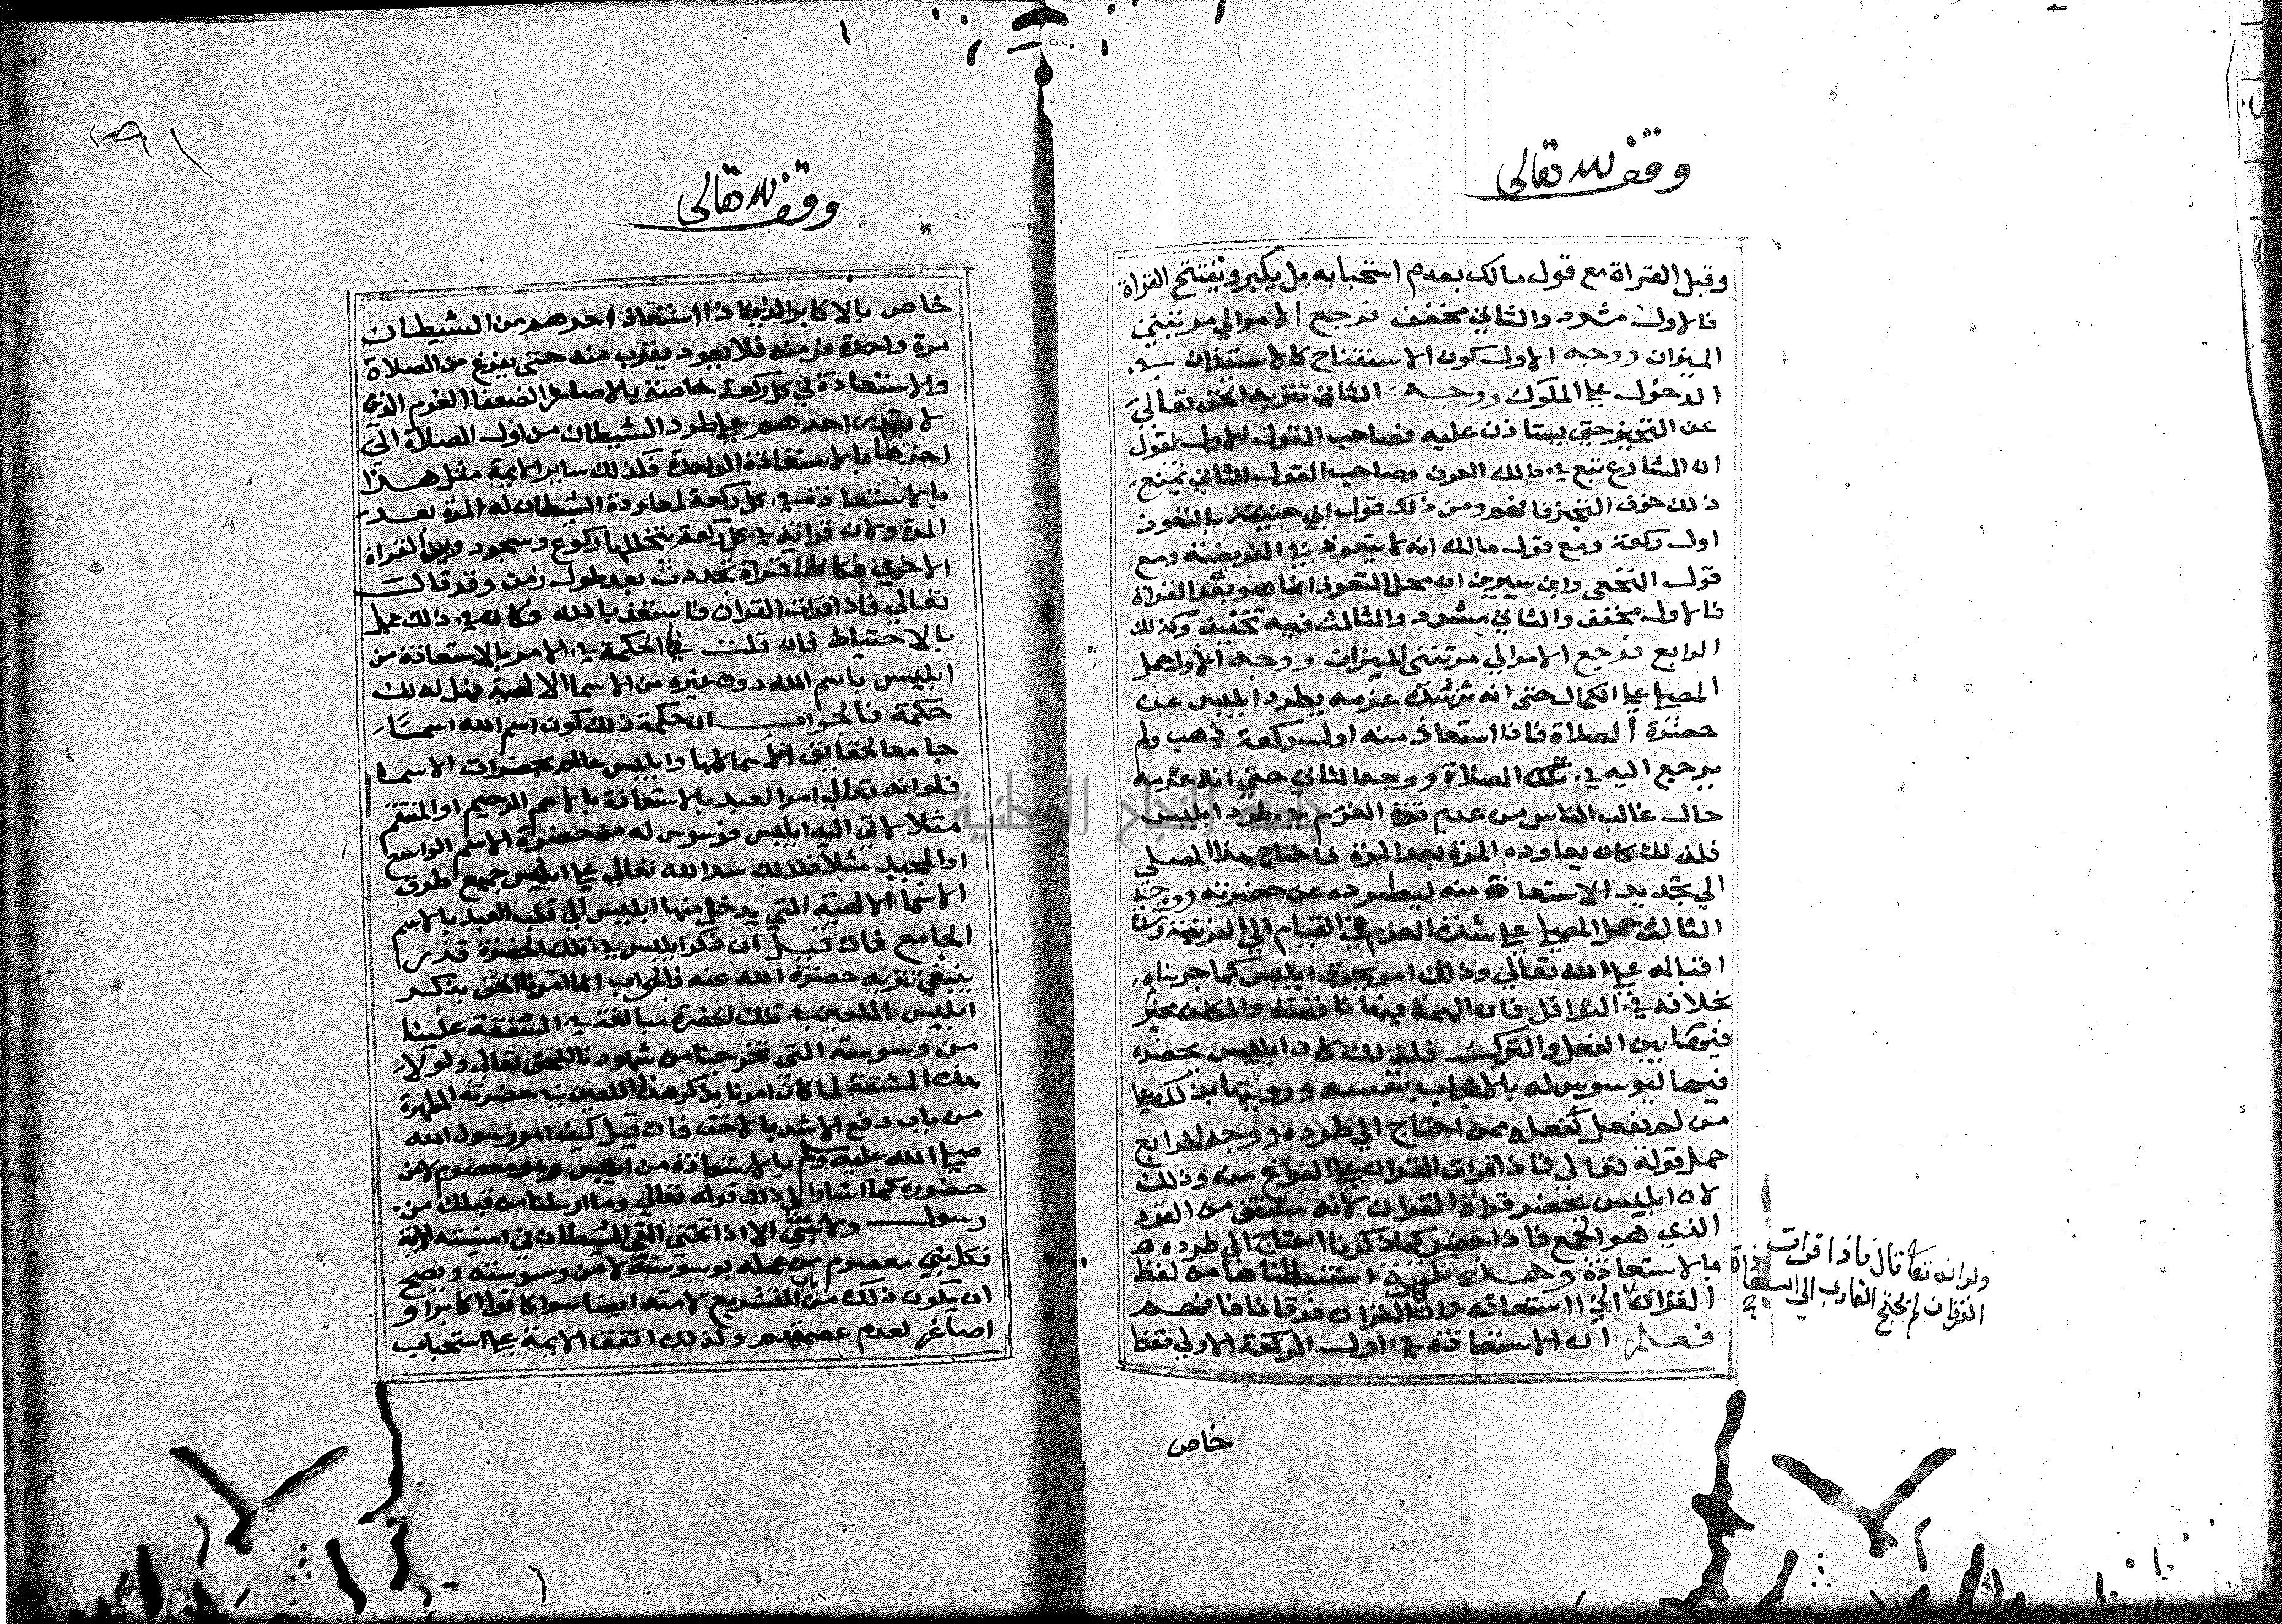 وقف لله تعالى
وقبل القراة مع قول مالك بعدم استحبابه بل يكبر ويفتتح القراة
فالاول مشدد والثاني مخفف فرجع الامر الي مرتبتي
الميزان ووجه الاول كون الاستفتاح كالاستئذان في
الدخول علي الملوك ووجه الثاني تنزيه الحق تعالي
عن التحيز حتي يستاذن عليه فصاحب القول الاول يقول
ان الشارع تبع في ذلك العرف وصاحب القول الثاني يمنع
ذلك خوف التحيز فافهم ومن ذلك قول ابي حنيفة بالتعوذ
اول ركعة ومع قول مالك انه لا يتعوذ في الفريضة ومع
قول النخعي وابن سيرين ان محل التعوذ انما هو بعد القراة
فالاول مخفف والثاني مشدد والثالث فيه تخفيف وكذلك
الرابع فرجع الامر الي مرتبتي الميزان ووجه الاول حمل
المصلي علي الكمال حتي انه من شدة عزمه يطرد ابليس عن
حضرة الصلاة فاذا استعاذ منه اول ركعة ذهب ولم
يرجع اليه في تلك الصلاة ووجه الثاني
حال غالب الناس من عدم قوة العزم في طرد ابليس
فلذلك كان يعاوده المرة بعد المرة فاحتاج هذا المصلي
الي تجديد الاستعاذة منه ليطرده عن حضرته ووجه
الثالث حمل المصلي علي شدة العزم في القيام الي الفريضة وشدة
اقباله علي الله تعالي وذلك امر يحرق ابليس كما جربناه
بخلافه في النوافل فان الهمة فيها ناقصة والمكلف مخير
فيها بين الفعل والترك فلذلك كان ابليس يحضره
فيها ليوسوس له بالاعجاب بنفسه ورويتها بذلك علي
من لم يفعل كفعله ممن احتاج الي طرده ووجه الرابع
حمل قوله تعالي فاذا قرات القران علي الفراغ منه وذلك
لان ابليس يحضر قراة القران لانه مشتق من القرء
الذي هو الجمع فاذا حضر كما ذكرنا احتاج الي طرده
بالاستعاذة وهذه نكتة استنبطناها من لفظ
القران الي الاستعاذة وان الفرقان فرقانا فافهم
فعلم ان الاستعاذة في اول الركعة الاولي فقط
ولو انه تعالى قال فاذا قرات
الفرقان لم يحتج القاري الي الاستعاذة
خاص
وقف لله تعالى
خاص بالاكابر الذين اذا استعاذ احدهم من الشيطان
مرة واحدة فر منه فلا يعود يقرب منه حتى يفرغ من الصلاة
والاستعاذة في كل ركعة خاصة بالاصاغر الضعفا العزم الذي
لا يقدر احدهم علي طرد الشيطان من اول الصلاة الي
اخرها بالاستعاذة الواحدة فلذلك ساير الايمة مثل هذا
بالاستعاذة في كل ركعة لمعاودة الشيطان له المرة بعد
المرة ولان قراته في كل ركعة يتخللها ركوع وسجود وبين القراة
الاخري فكانها قراة تجددت بعد طول زمن وقد قال
تعالي فاذا قرات القران فاستعذ بالله فكان في ذلك عمل
بالاحتياط فان قلت فما الحكمة في الامر بالاستعاذة من
ابليس باسم الله دون غيره من الاسما الالهية فهل لذلك
حكمة فالجواب ان حكمة ذلك كون اسم الله اسما
جامعا لحقايق الاسما كلها وابليس عالم بحضرات الاسما
فلو انه تعالي امر العبد بالاستعاذة بالاسم الرحيم او المنتقم
مثلا لاتي اليه ابليس فوسوس له من حضرة الاسم الواسع
او المجيد مثلا فلذلك سد الله تعالي علي ابليس جميع طرق
الاسما الالهية التي يدخل منها ابليس الي قلب العبد بالاسم
الجامع فان قيل ان ذكر ابليس في تلك الحضرة قذر
ينبغي تنزيه حضرة الله عنه فالجواب انما امرنا الحق بذكر
ابليس اللعين في تلك الحضرة مبالغة في الشفقة علينا
من وسوسته التي تخرجنا من شهودنا للحق تعالي ولولا
هذه الشفقة لما كان امرنا بذكر هذا اللعين في حضرته المطهرة
من باب دفع الاشد بالاخف فان قيل كيف امر رسول الله
صلي الله عليه وسلم بالاستعاذة من ابليس وهو معصوم من
حضوره كما اشار الي ذلك قوله تعالي وما ارسلنا من قبلك من
رسول ولا نبي الا اذا تمنى القي الشيطان في امنيته الاية
فكل نبي معصوم من عمله بوسوسته لا من وسوسته ويصح
ان يكون ذلك من باب التشريع لامته ايضا سوا كانوا اكابر او
اصاغر لعدم عصمتهم ولذلك اتفق الايمة علي استحباب
جامعة النجاح الوطنية